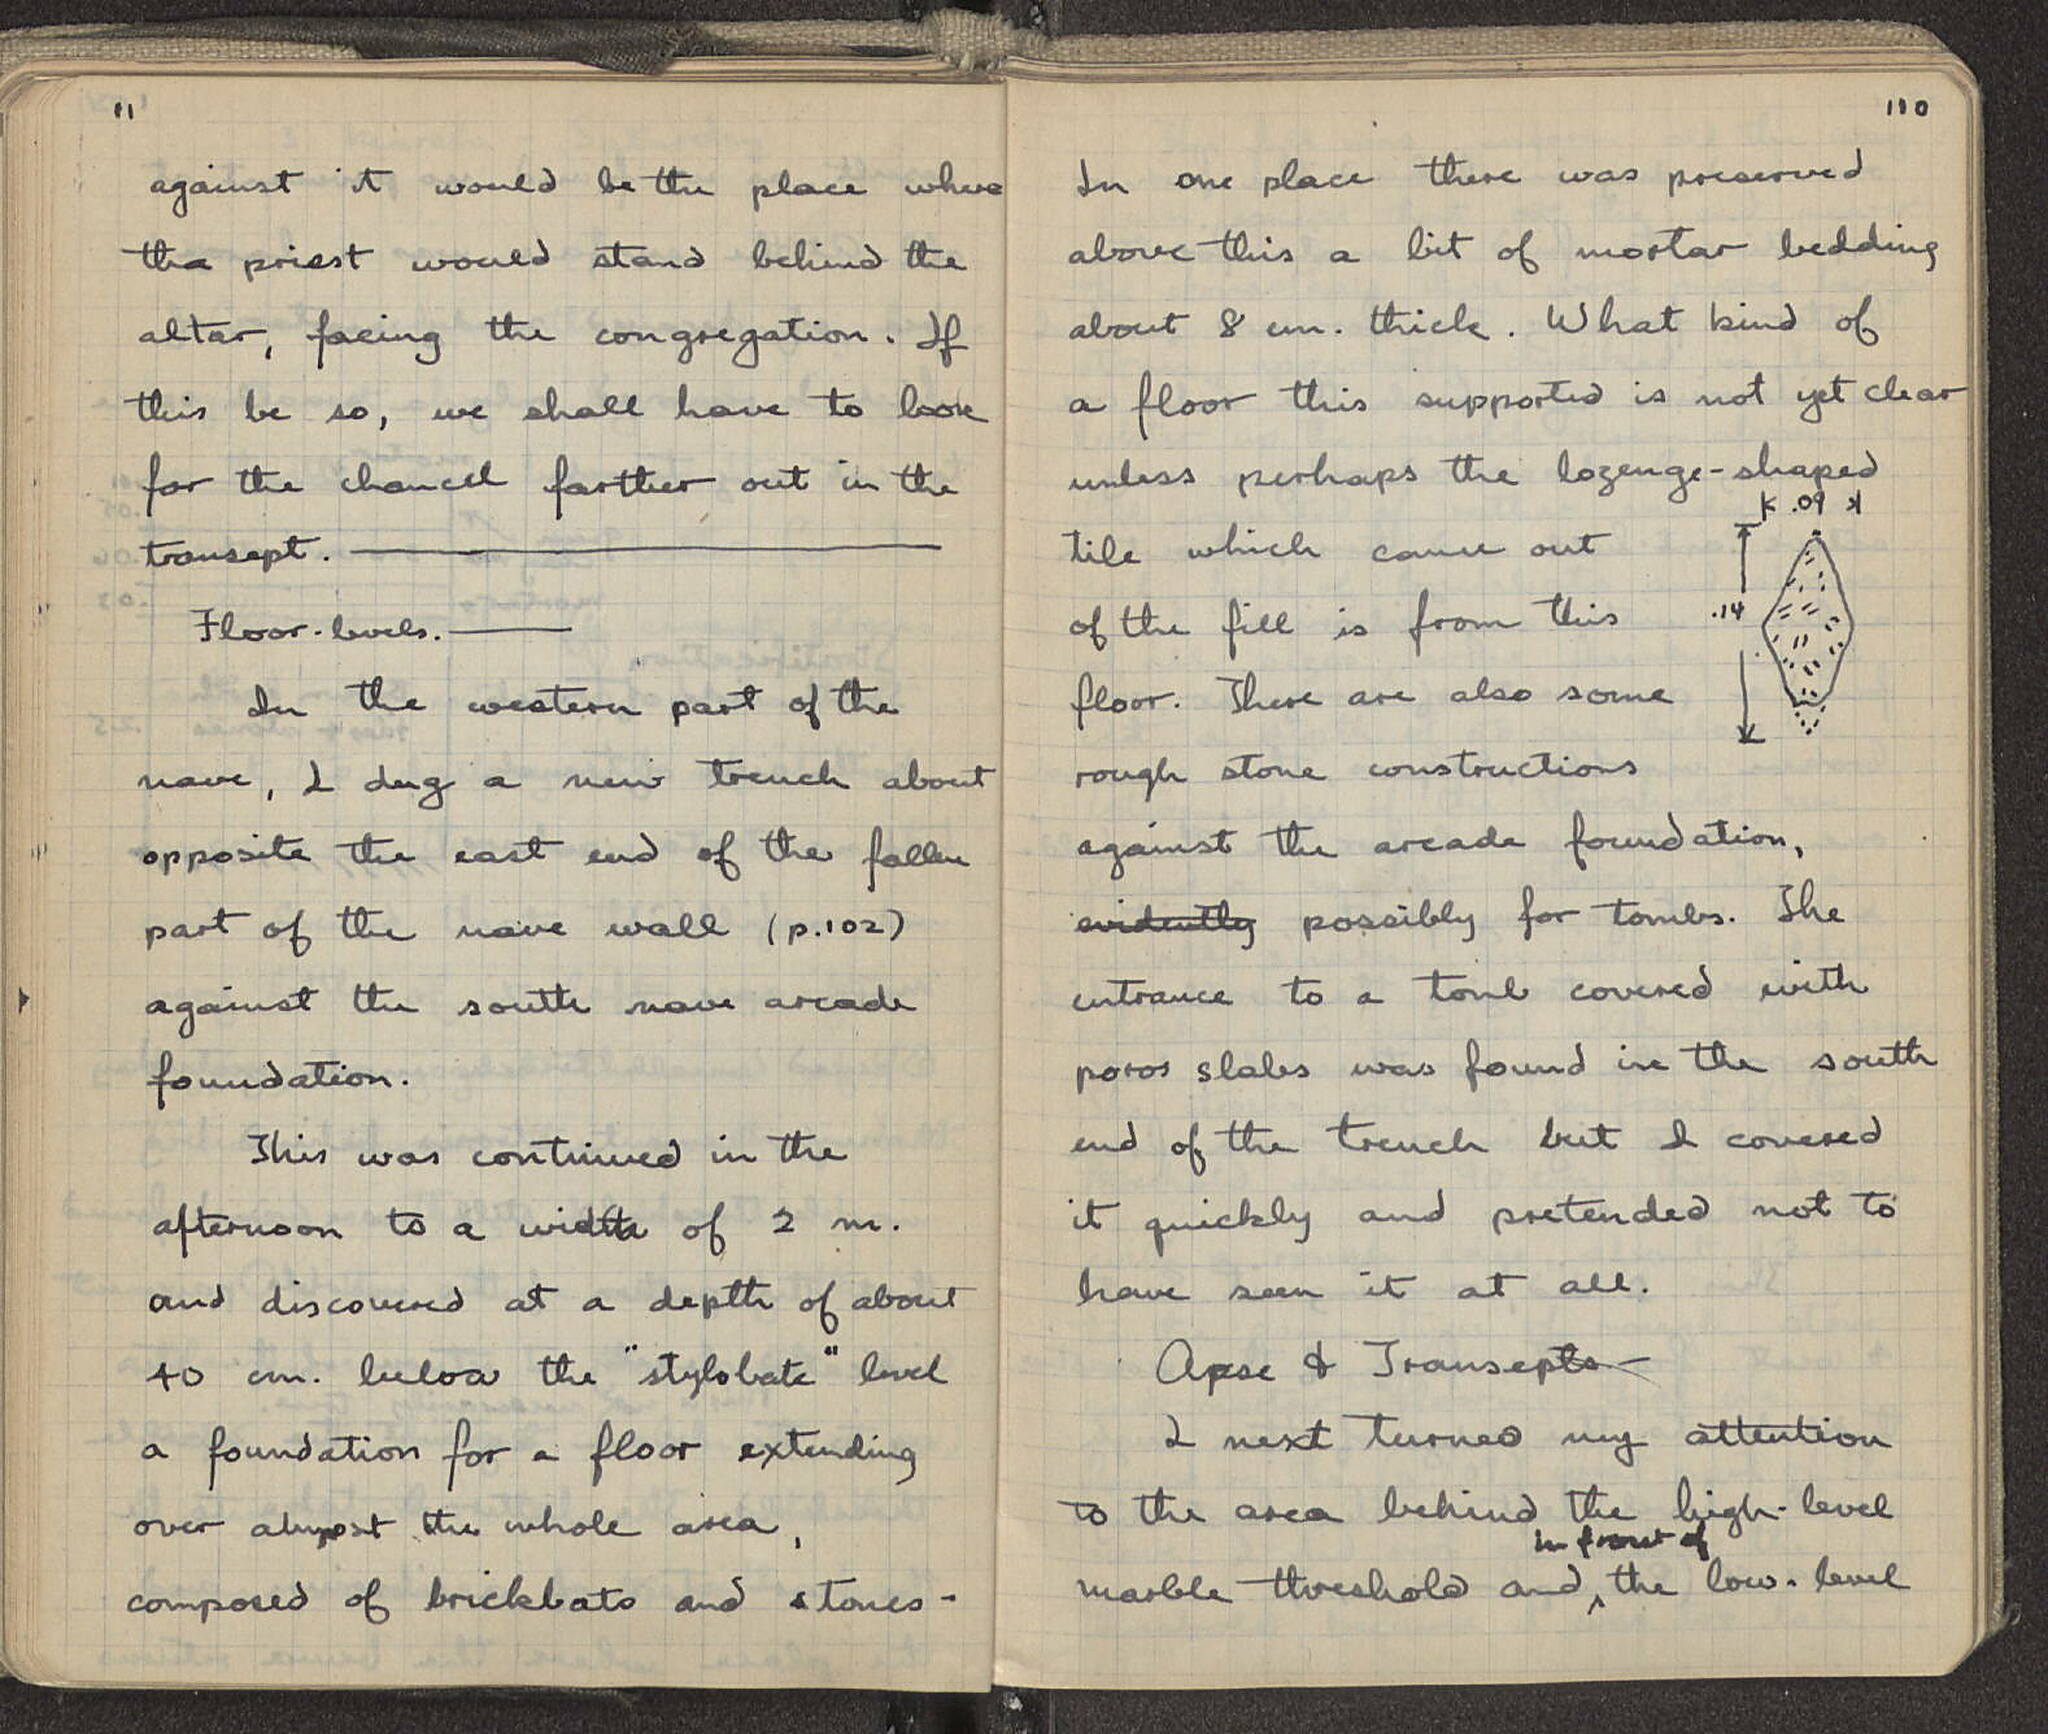 11
against it would be the place where
the priest would stand behind the
altar, facing the congregation. If
this be so, we shall have to look
for the chancel farther out in the
transept.
Floor-levels.
In the western part of the
nave, I dug a new trench about
opposite the east end of the fallen
part of the nave wall (p.102)
against the south nave arcade
foundation.
This was continued in the
afternoon to a width of 2 m.
and discovered at a depth of about
40 cm. below the "stylobate" level
a foundation for a floor extending
over almost the whole area,
composed of brickbats and stones-
110
In one place there was preserved
above this a bit of mortar bedding
about 8 cm. thick. What kind of
a floor this supported is not yet clear
unless perhaps the lozenge-shaped
.09
tile which came out
of the fill is from this
.14
floor. There are also some
rough stone constructions
against the arcade foundation,
evidently possibly for tombs. The
entrance to a tomb covered with
poros slabs was found in the south
end of the trench but I covered
it quickly and pretended not to
have seen it at all.
Apse & Transepts
I next turned my attention
to the area behind the high-level
in front of
marble threshold and the low-level